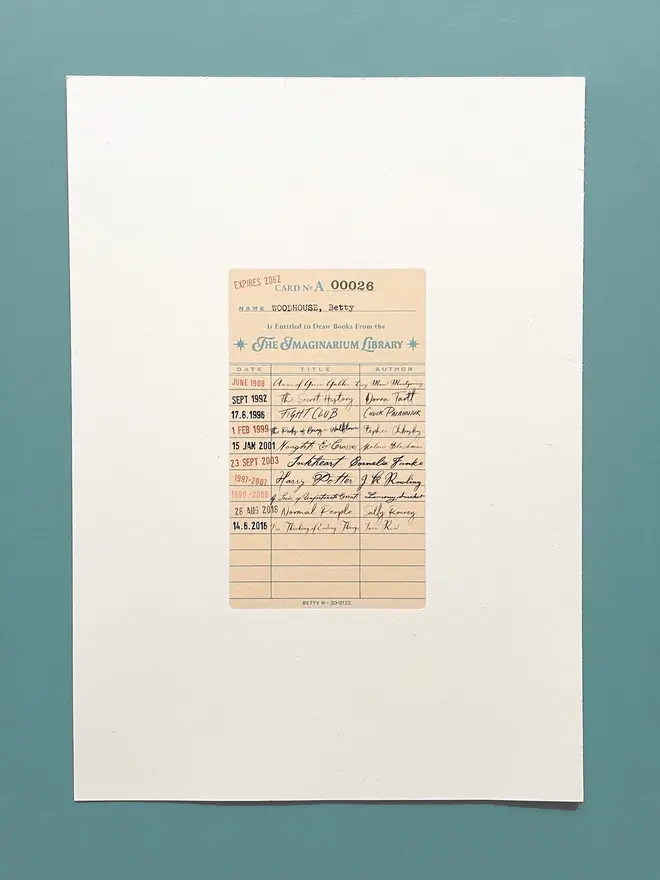 EXPIRES 2062
CARD No A 00026
NAME WOODHOUSE, Betty
Is Entitled to Draw Books From the
THE IMAGINARIUM LIBRARY
DATE TITLE AUTHOR
JUNE 1908 Anne of Green Gables Lucy Maud Montgomery
SEPT 1992 The Secret History Donna Tartt
17.8.1996 FIGHT CLUB CHUCK PALAHNIUK
1 FEB 1999 The Perks of Being a Wallflower Stephen Chbosky
15 JAN 2001 Noughts & Crosses Malorie Blackman
23 SEPT 2003 Inkheart Cornelia Funke
1997-2007 Harry Potter J K Rowling
1999-2006 A Series of Unfortunate Events Lemony Snicket
28 AUG 2018 Normal People Sally Rooney
14.6.2016 I'm Thinking of Ending Things Iain Reid
BETTY W - 20-2122